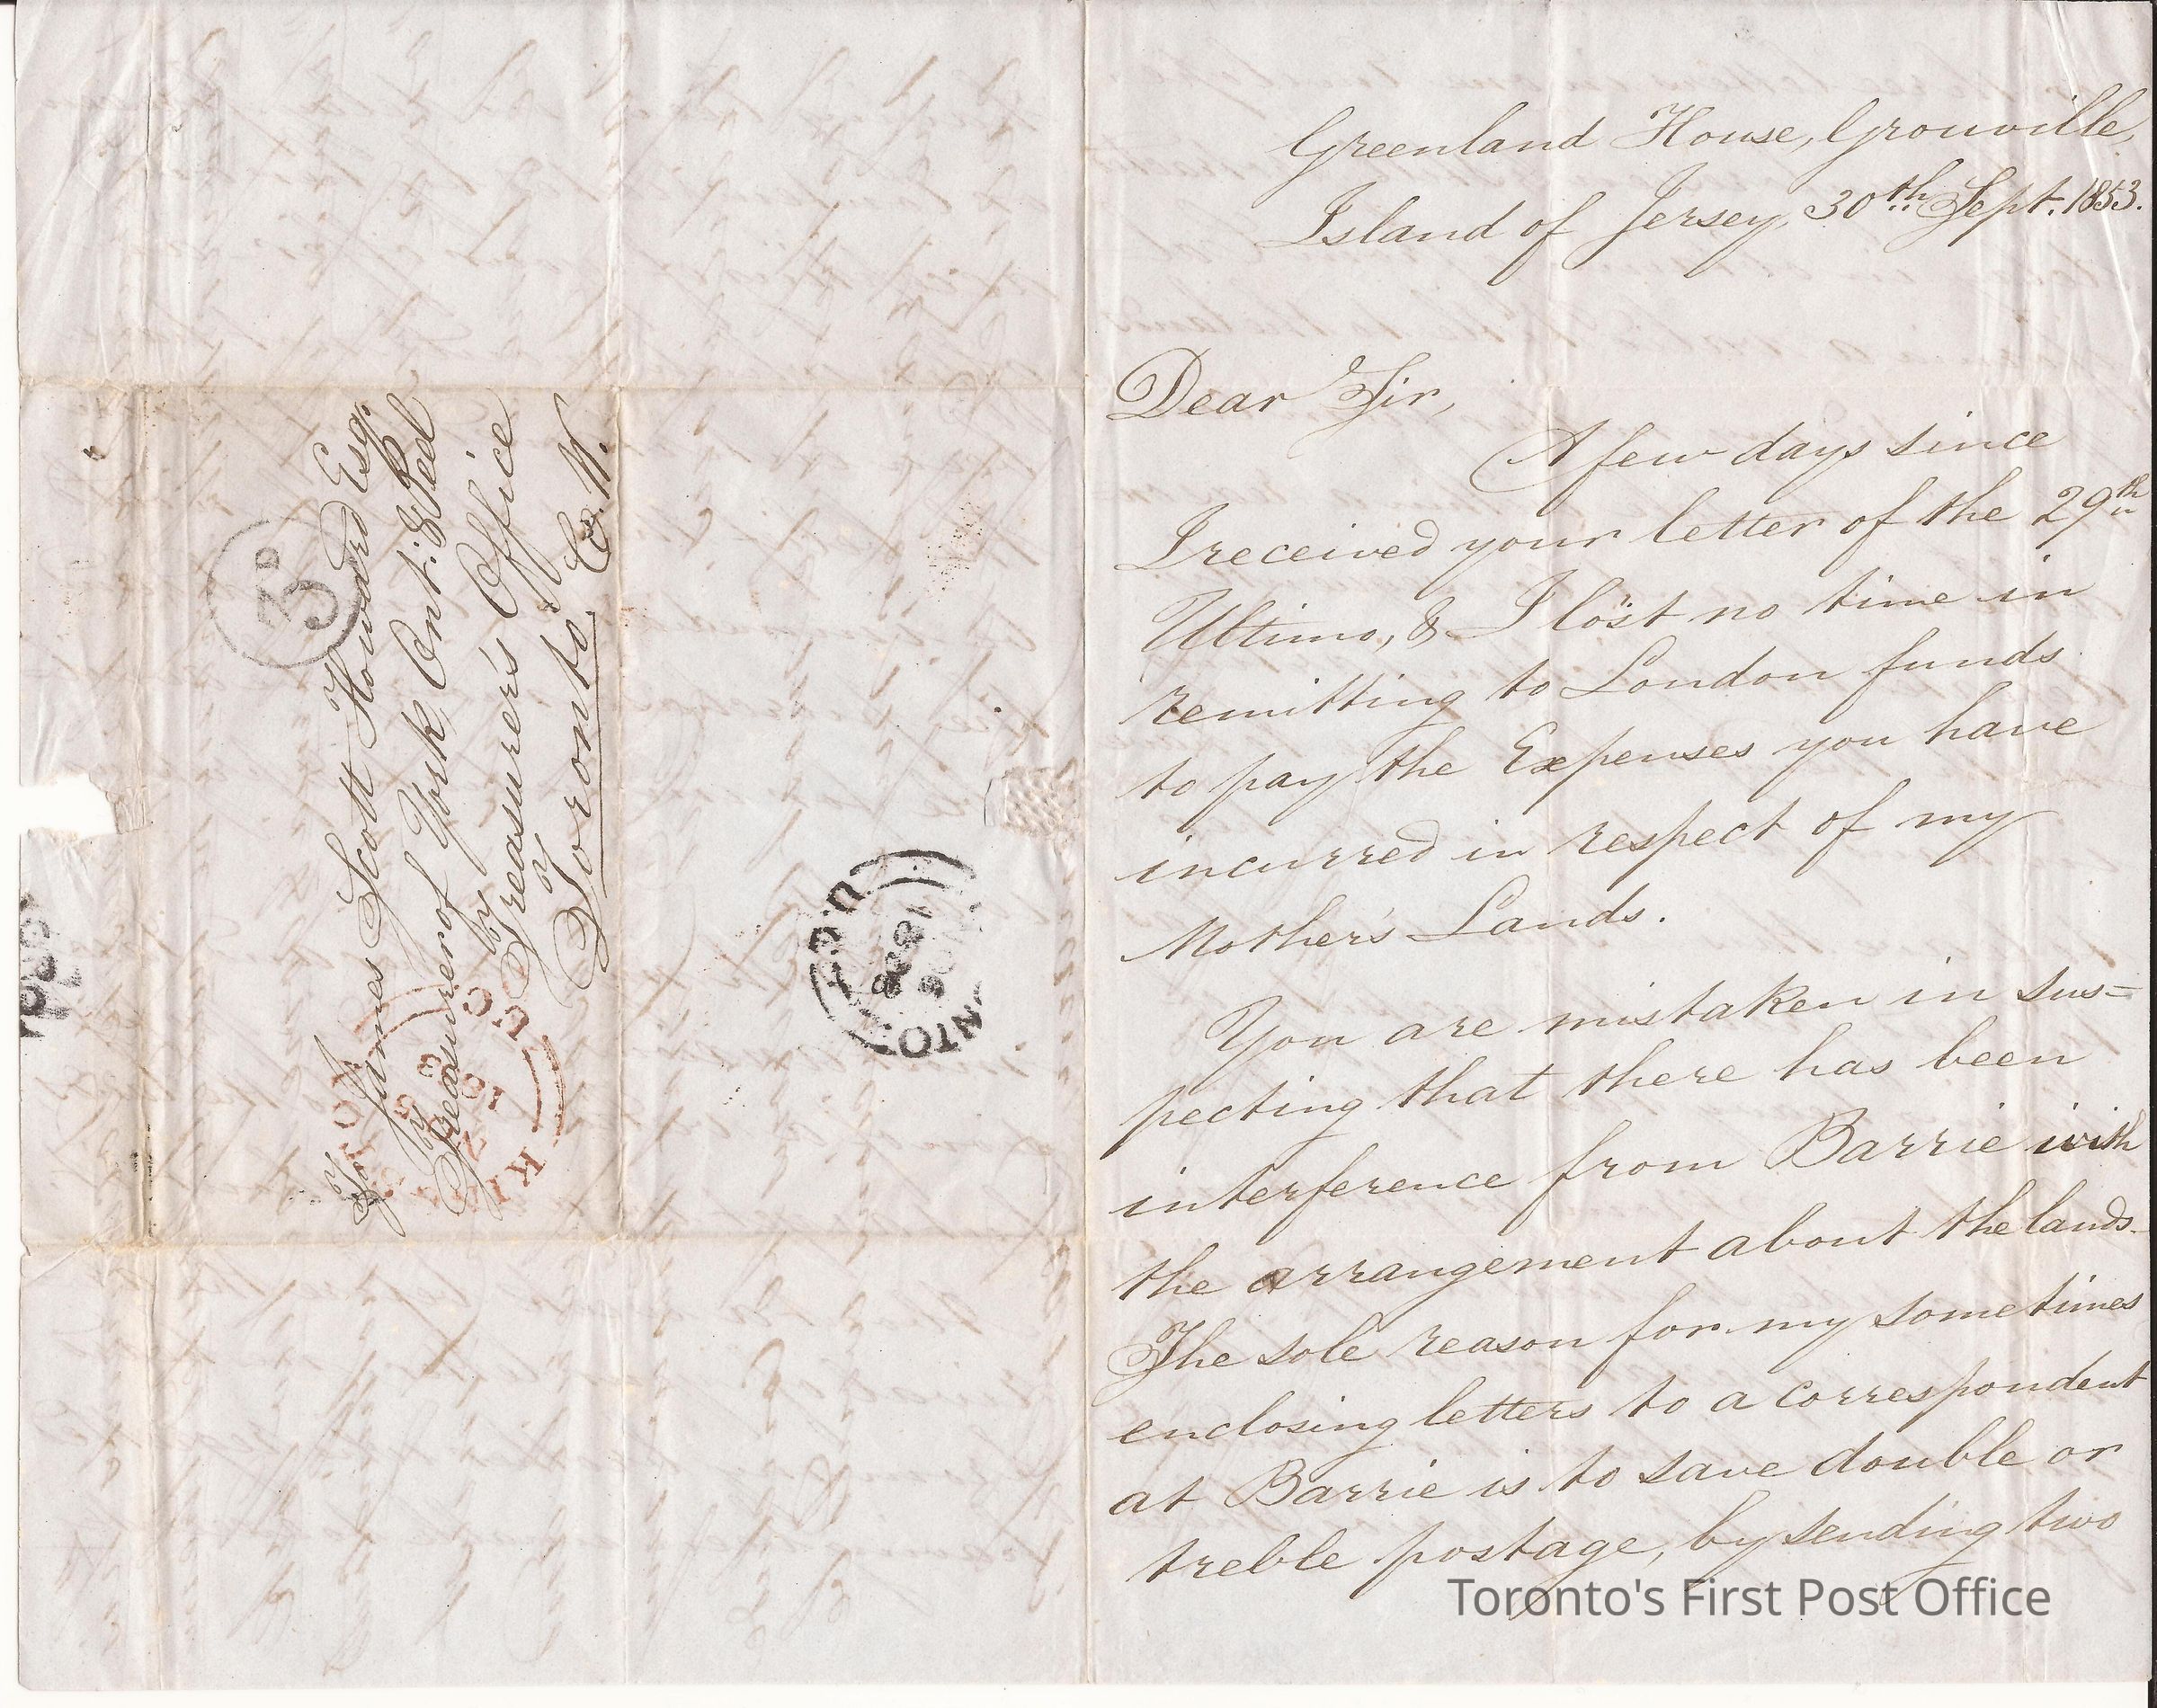 To James Scott Howard Esq.
Treasurer of York, Ont: & Peel
by Treasurer's Office
Toronto. C. W.
3D
TORONTO U.C.
U.C.
Greenland House, Grouville,
Island of Jersey, 30th Sept. 1853.
Dear Sir,
A few days since
I received your letter of the 29th
Ultimo, & I lost no time in
remitting to London funds
to pay the Expenses you have
incurred in respect of my
Mother's Lands.
You are mistaken in sus=
pecting that there has been
interference from Barrie with
the arrangement about the lands.
The sole reason for my sometimes
enclosing letters to a correspondent
at Barrie is to save double or
treble postage, by sending two
Toronto's First Post Office